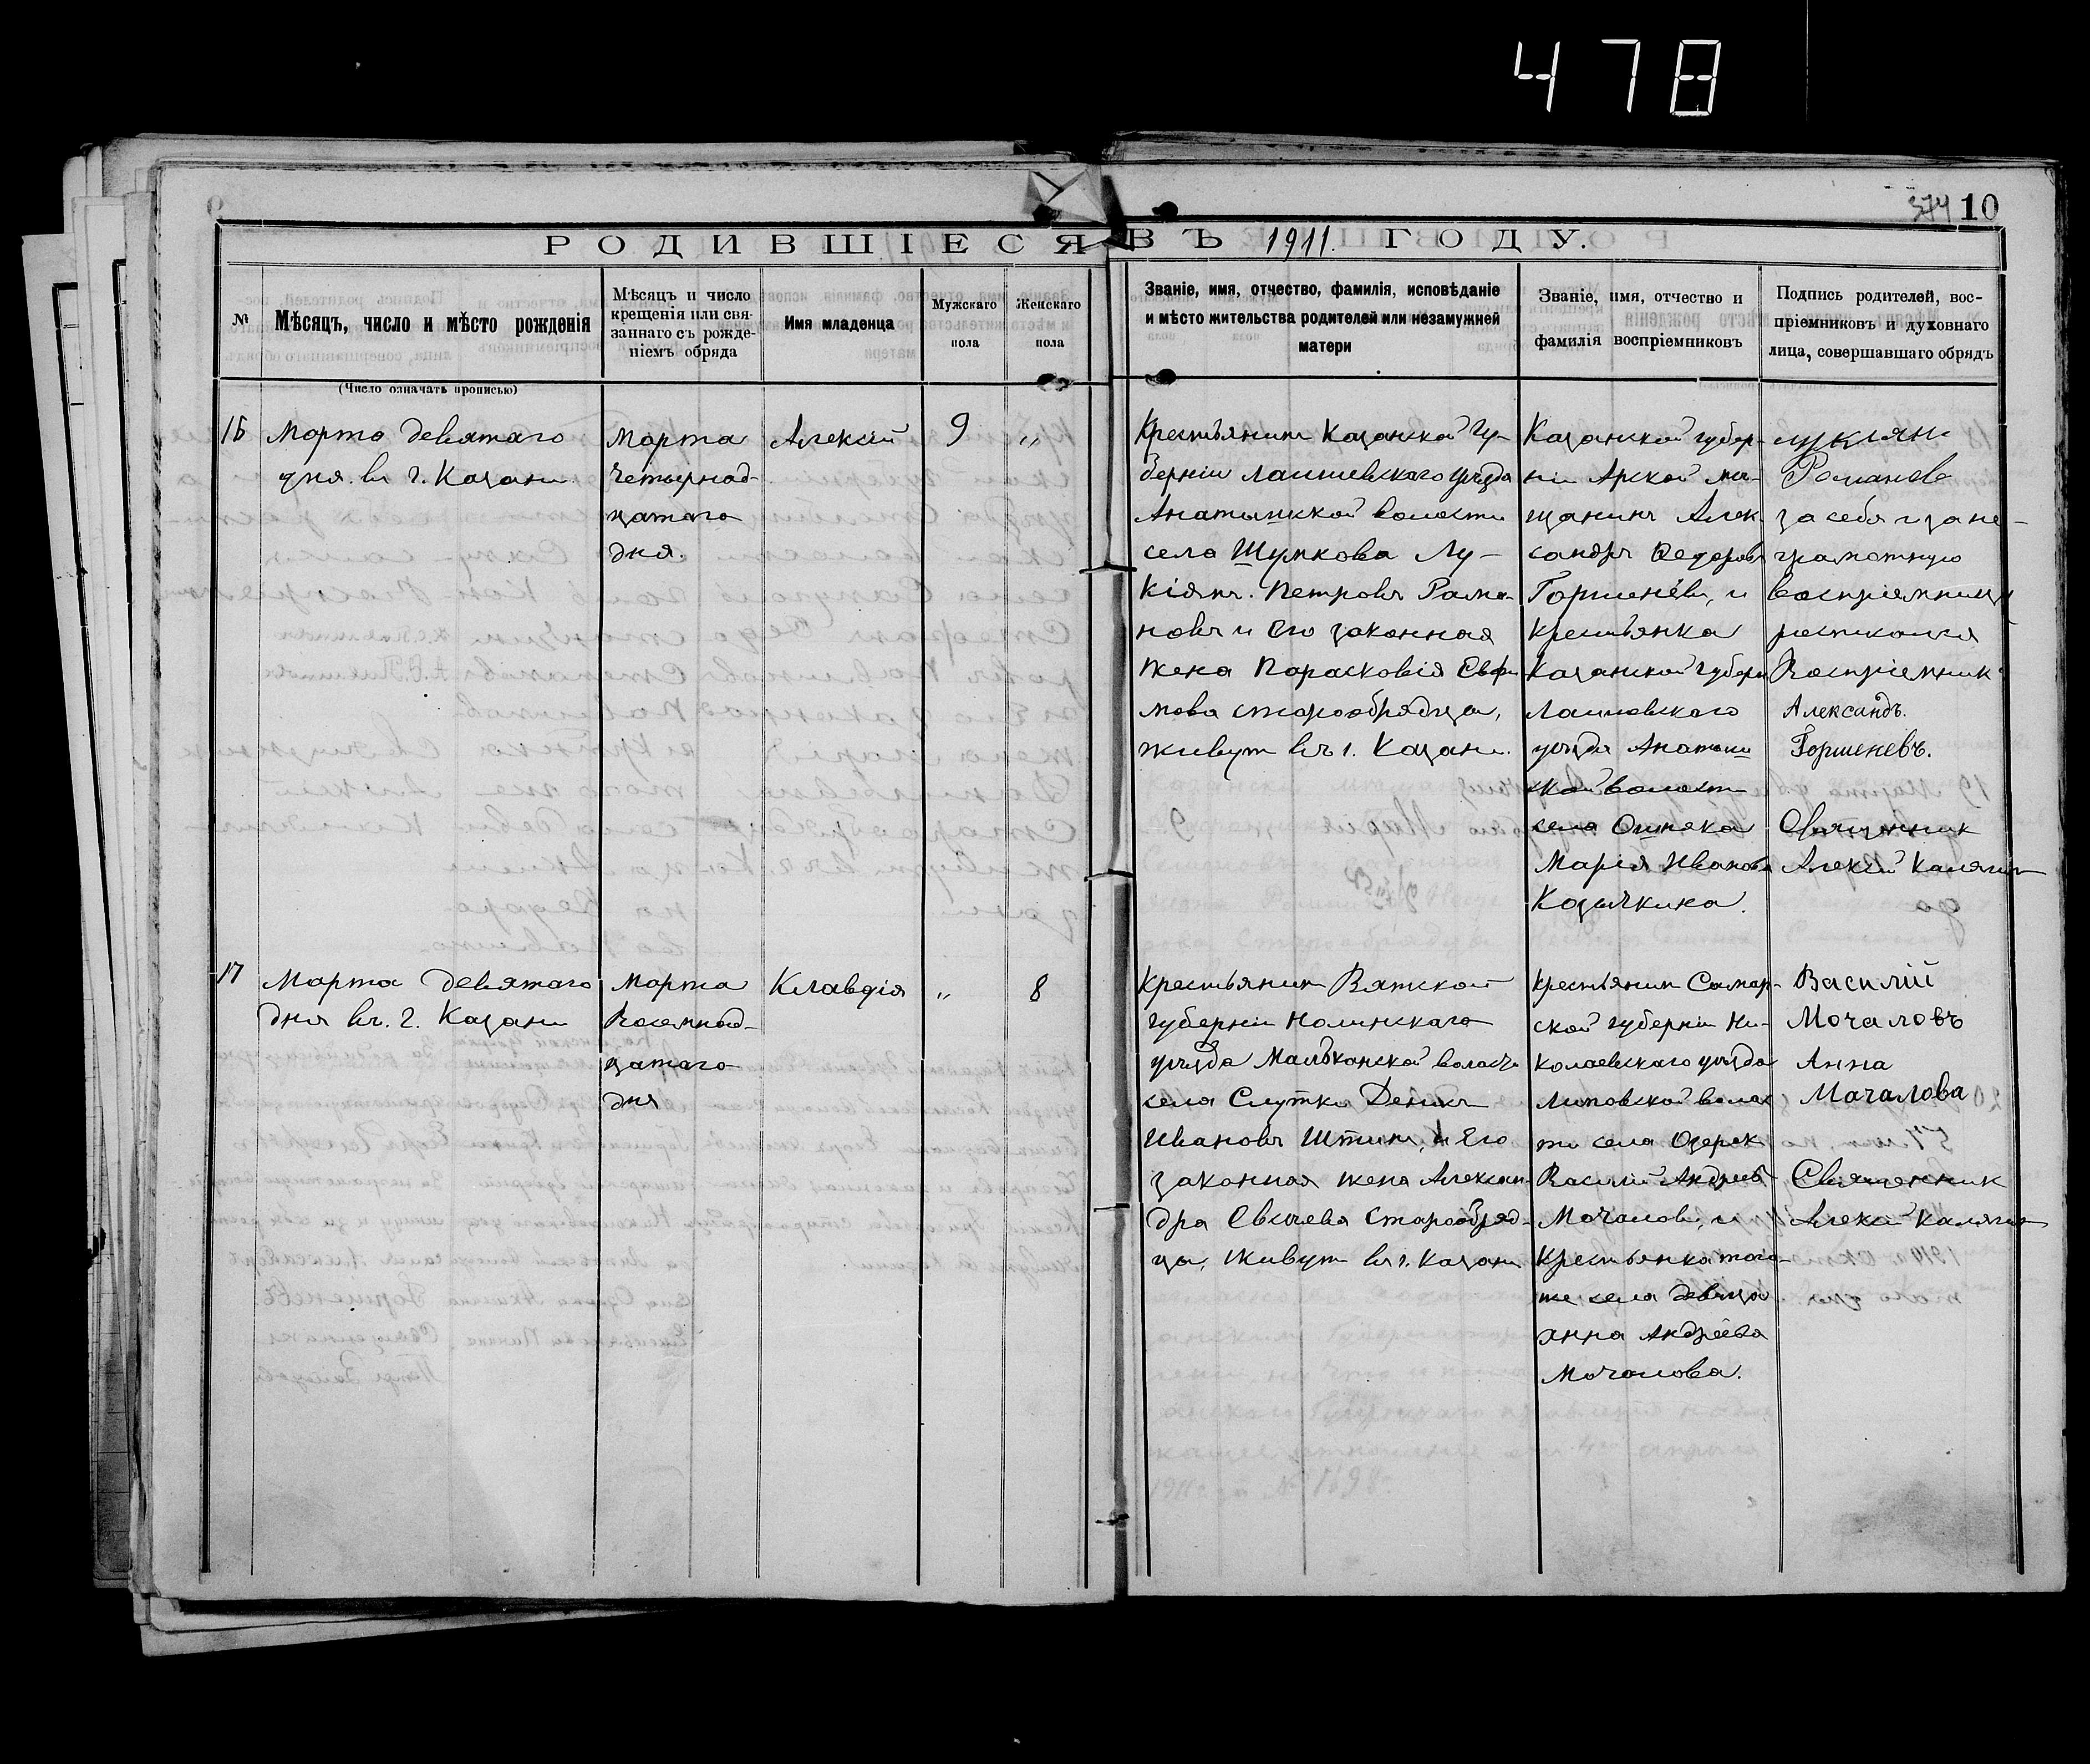 478
374 10
РОДИВШІЕСЯ ВЪ 1911 ГОДУ.
№
Мѣсяцъ, число и мѣсто рожденія
(Число означать прописью)
Мѣсяцъ и число
крещенія или свя-
заннаго съ рожде-
ніемъ обряда
Имя младенца
Мужскаго
пола
Женскаго
пола
Званіе, имя, отчество, фамилія, исповѣданіе
и мѣсто жительства родителей или незамужней
матери
Званіе, имя, отчество и
фамилія воспріемниковъ
Подпись родителей, вос-
пріемниковъ и духовнаго
лица, совершавшаго обрядъ
16
Марта девятаго
дня. въ г. Казани
Марта
четырнад-
цатаго
дня.
Алексій
9
"
Крестьянинъ Казанской Гу-
берніи Лаишевскаго уѣзда
волости
села Шумкова Лу-
кіянъ Петровъ Рама-
новъ и Его законная
жена Парасковія Евфи
мова старообрядцы,
живут въ г. Казани.
Казанской губер-
ніи Арской мѣ-
щанинъ Алек-
сандръ Федоровъ
Горшенёвъ, и
крестьянка
Казанской губерн
Лаишевскаго
уѣзда
волости
села Ошняка
Марія Иванова
Козычкина.
Лукіянъ
Романовъ
за себя и за не-
грамотную
воспріемницу
росписался
Воспріемникъ
Александъ.
Горшеневъ.
Священник
Алексій Калягинъ
17
Марта девятаго
дня въ. г. Казани
Марта
Восемнад-
цатаго
дня
Клавдія
"
8
Крестьянин Вятской
губерніи Нолинскаго
уѣзда волости
села Слутки Денисъ
Ивановъ Штинъ, и Его
законная жена Алексан-
дра старообряд-
цы, живут въ г. Казани
Крестьянин Самар-
ской губерніи Ни-
колаевскаго уѣзда
Липовской волос
ти села Озерок
Василій Андреевъ
Мочаловъ, и
Крестьянка того-
же села девица
Анна Андрѣева
Мочалова.
Василій
Мочаловъ
Анна
Мачалова
Священник
Алексій Калягинъ